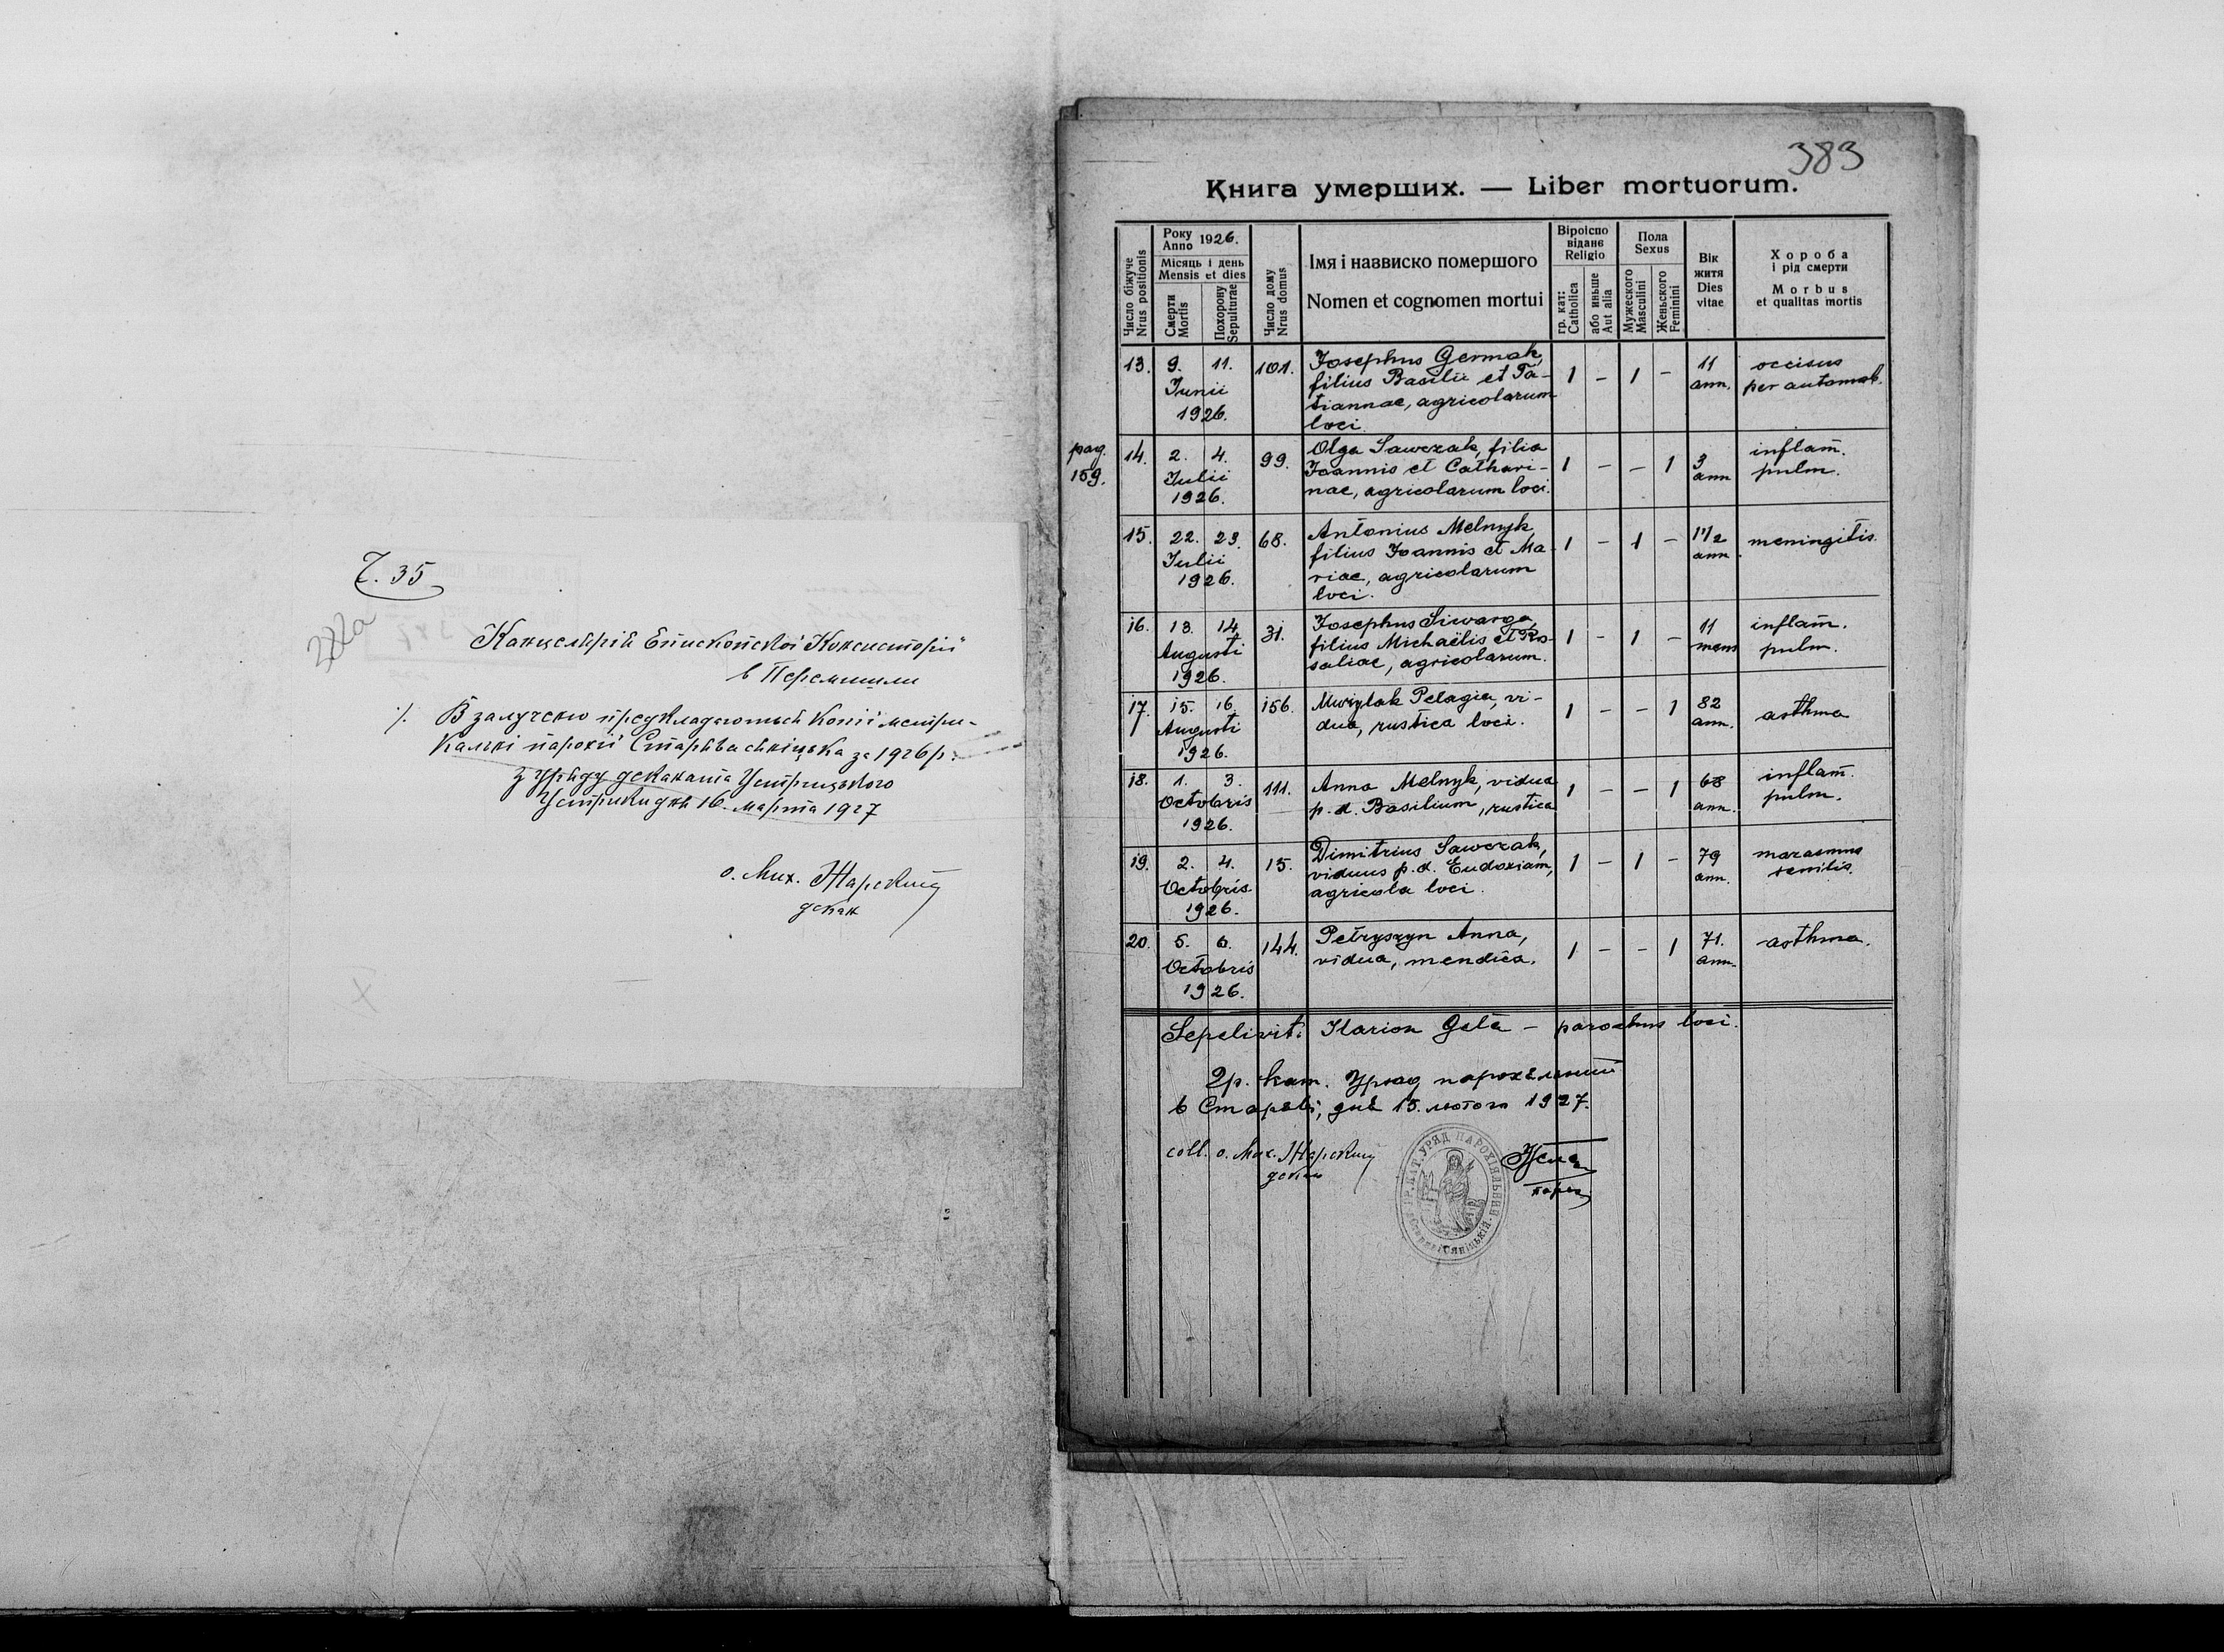 Ч. 35
Канцелярій Епископскої Консисторії
в Перемишли
./. В залученю предкладаються копії метри-
кальні парохії Старява сяніцька за 1926 р.
З уряду деканата Устрицького
Устрики дня 16. марта 1927
о. Мих. Жарский
декан
383
Книга умерших. — Liber mortuorum.
Число біжуче Nrus positionis
Року Anno 1926.
Місяць і день Mensis et dies
Смерти Mortis
Похорону Sepulturae
Число дому Nrus domus
Імя і назвиско помершого
Nomen et cognomen mortui
Віроіспо відане Religio
гр. кат: Catholica
або иньше Aut alia
Пола Sexus
Мужеского Masculini
Женьского Feminini
Вік житя Dies vitae
Хороба і рід смерти
Morbus et qualitas mortis
13. 9. 11. 101. Josephus Germak, 1 – 1 – 11 occisus
Junii filius Basilii et Ta- ann. per automob.
1926. tiannae, agricolarum
loci.
pag. 159.
14. 2. 4. 99. Olga Sawczak, filia 1 – – 1 3 inflam.
Julii Joannis et Cathari- ann pulm.
1926. nae, agricolarum loci.
15. 22. 23. 68. Antonius Melnyk 1 – 1 – 1 1/2 meningitis.
Julii filius Joannis et Ma- ann.
1926. riae, agricolarum
loci.
16. 13. 14. 31. Josephus Siwarga, 1 – 1 – 11 inflam.
Augusti filius Michaëlis et Ro- mens pulm.
1926. saliae, agricolarum.
17. 15. 16. 156. Pelagia, vi- 1 – – 1 82 asthma
Augusti dua, rustica loci. ann.
1926.
18. 1. 3. 111. Anna Melnyk, vidua 1 – – 1 68 inflam.
Octobris p. d. Basilium, rustica ann. pulm.
1926.
19. 2. 4. 15. Dimitrius Sawczak, 1 – 1 – 79 marasmus
Octobris viduus p. d. Eudoxiam, ann. senilis.
1926. agricola loci.
20. 5. 6. 144. Petryszyn Anna, 1 – – 1 71. asthma.
Octobris vidua, mendica. ann.
1926.
Sepelivit: Ilarion Gela – parochus loci.
Гр. кат. Уряд парохіяльний
в Старяві, дня 15. лютого 1927.
coll. о. Мих. Жарский
декан
ГР. КАТ. УРЯД ПАРОХІЯЛЬНИЙ